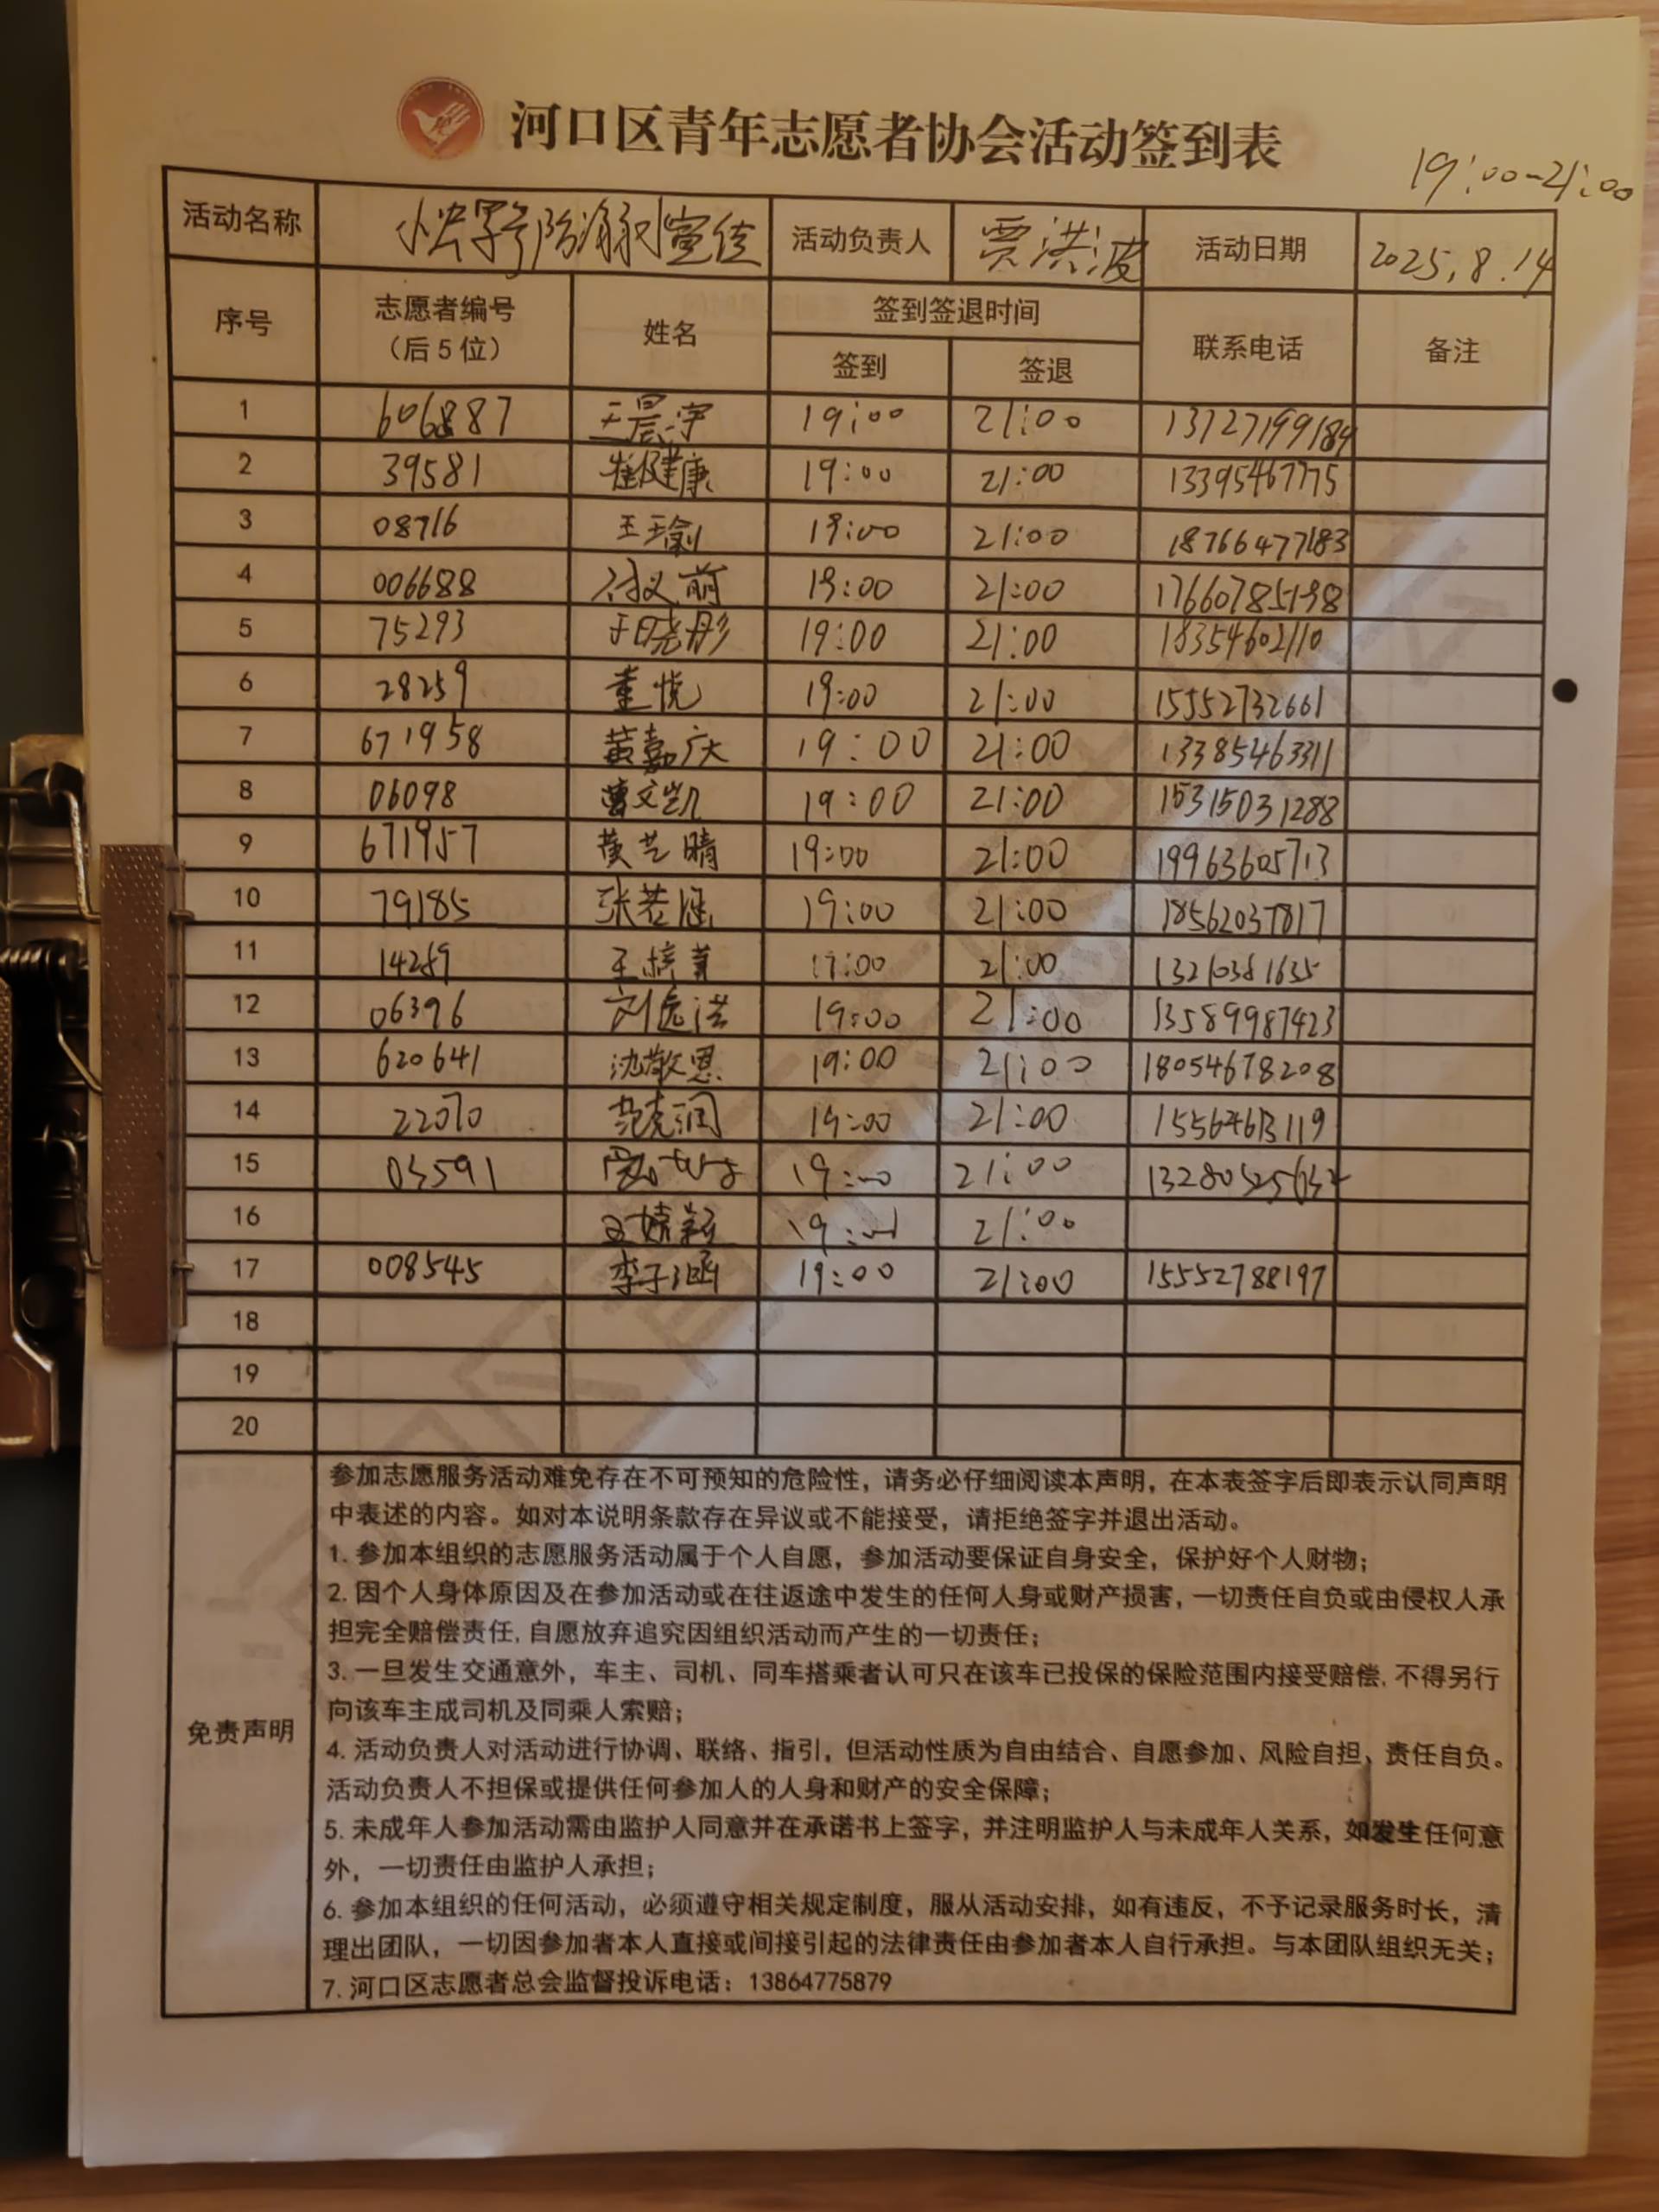 河口区青年志愿者协会活动签到表
19:00-21:00
活动名称 防溺水宣传 活动负责人 贾洪波 活动日期 2025.8.14
序号 志愿者编号（后5位） 姓名 签到签退时间 联系电话 备注
签到 签退
1 606887 王晨宇 19:00 21:00 13727199189
2 39581 崔健康 19:00 21:00 13395467775
3 08716 王瑜 19:00 21:00 18766477183
4 006688 19:00 21:00 17660785198
5 75293 于晓彤 19:00 21:00 18354602110
6 28259 董悦 19:00 21:00 15552732661
7 671958 黄嘉庆 19:00 21:00 13385463311
8 06098 曹文凯 19:00 21:00 15315031288
9 671957 黄艺晴 19:00 21:00 19963605713
10 79185 张若涵 19:00 21:00 18562037817
11 14289 19:00 21:00 13210381635
12 06396 刘远洪 19:00 21:00 13589987423
13 620641 沈敬恩 19:00 21:00 18054678208
14 22070 范克润 19:00 21:00 15564613119
15 03591 19:00 21:00
16 王婧颖 19:00 21:00
17 008545 李子涵 19:00 21:00 15552788197
18
19
20
免责声明
参加志愿服务活动难免存在不可预知的危险性，请务必仔细阅读本声明，在本表签字后即表示认同声明
中表述的内容。如对本说明条款存在异议或不能接受，请拒绝签字并退出活动。
1. 参加本组织的志愿服务活动属于个人自愿，参加活动要保证自身安全，保护好个人财物；
2. 因个人身体原因及在参加活动或在往返途中发生的任何人身或财产损害，一切责任自负或由侵权人承
担完全赔偿责任，自愿放弃追究因组织活动而产生的一切责任；
3. 一旦发生交通意外，车主、司机、同车搭乘者认可只在该车已投保的保险范围内接受赔偿，不得另行
向该车主成司机及同乘人索赔；
4. 活动负责人对活动进行协调、联络、指引，但活动性质为自由结合、自愿参加、风险自担、责任自负。
活动负责人不担保或提供任何参加人的人身和财产的安全保障；
5. 未成年人参加活动需由监护人同意并在承诺书上签字，并注明监护人与未成年人关系，如发生任何意
外，一切责任由监护人承担；
6. 参加本组织的任何活动，必须遵守相关规定制度，服从活动安排，如有违反，不予记录服务时长，清
理出团队，一切因参加者本人直接或间接引起的法律责任由参加者本人自行承担。与本团队组织无关；
7. 河口区志愿者总会监督投诉电话：13864775879